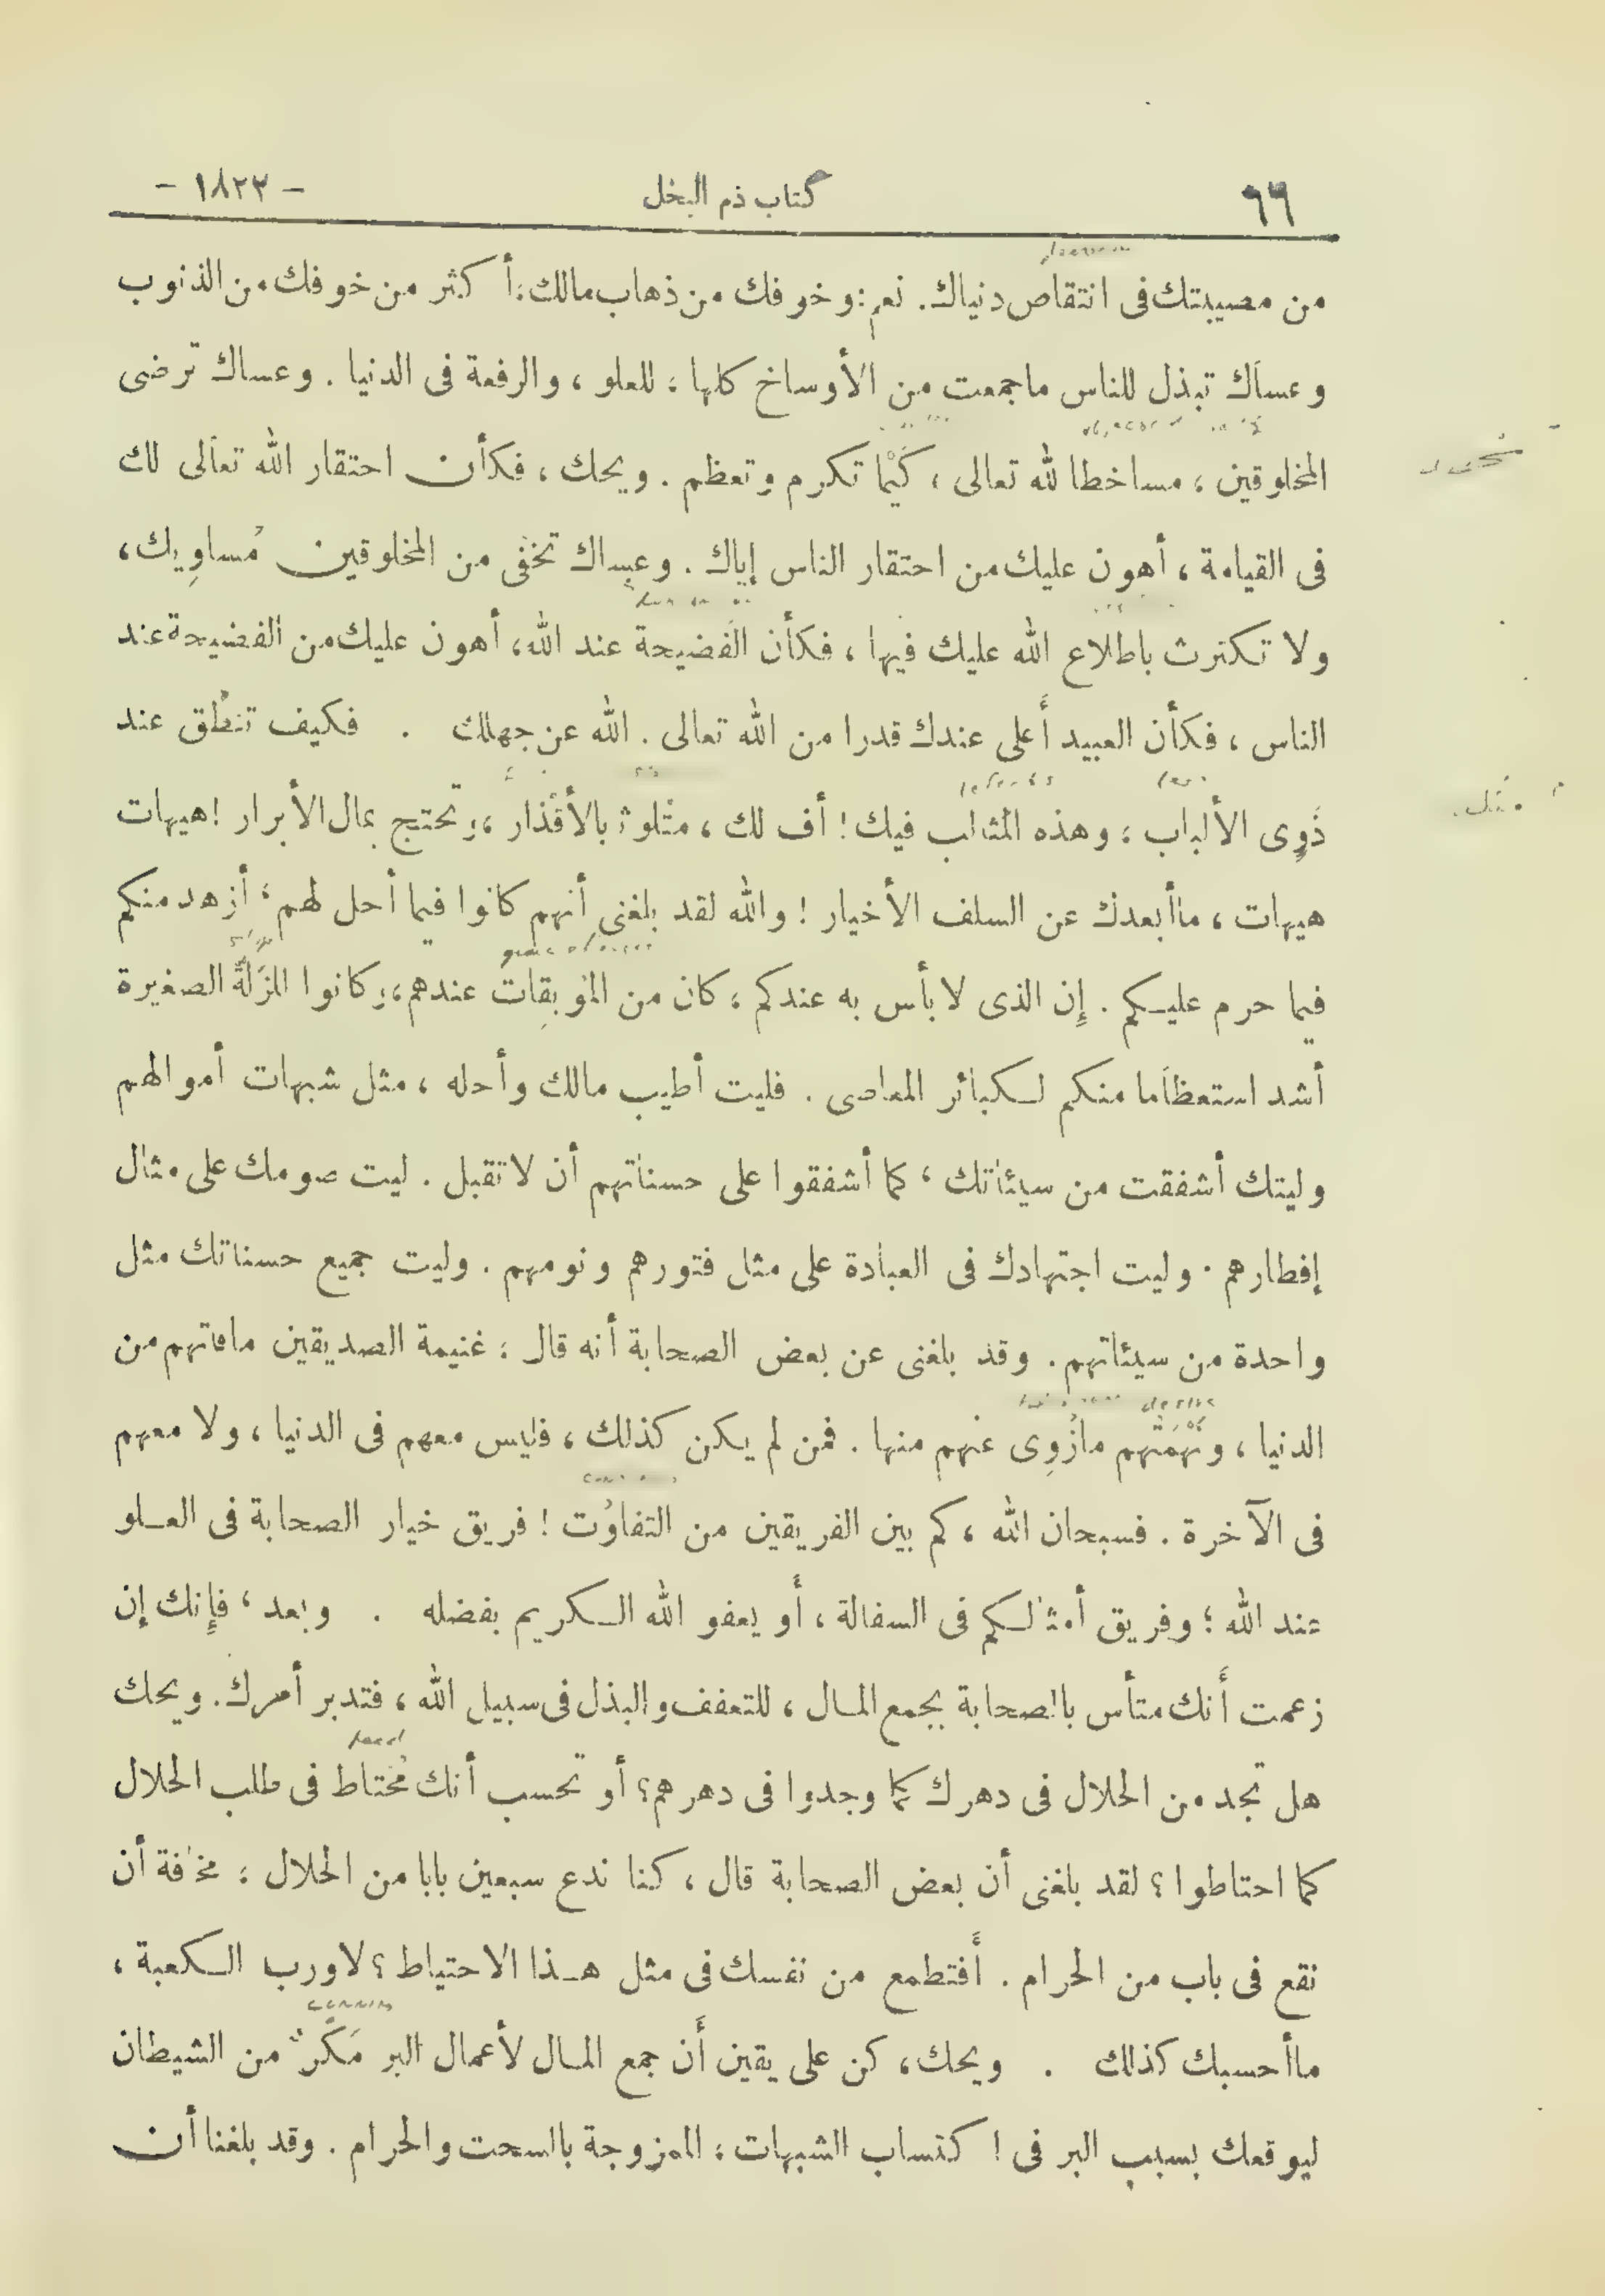 ٩٦ كتاب ذم البخل - ١٨٢٢ -
من مصيبتك فى انتقاص دنياك. نعم: وخوفك من ذهاب مالك، أكثر من خوفك من الذنوب
وعساك تبذل للناس ماجمعت من الأوساخ كلها، للعلو، والرفعة فى الدنيا. وعساك ترضى
المخلوقين، مساخطا لله تعالى، كَيْما تكرم وتعظم. ويحك، فكأن احتقار الله تعالى لك
فى القيامة، أهون عليك من احتقار الناس إياك. وعساك تخفى من المخلوقين مُساوِيك،
ولا تكترث باطلاع الله عليك فيها، فكأن الفضيحة عند الله، أهون عليك من الفضيحة عند
الناس، فكأن العبيد أعلى عندك قدرا من الله تعالى. الله عن جهلك . فكيف تنطُق عند
ذَوِى الألباب، وهذه المثالب فيك! أف لك، متلوث بالأقْذار، وتحتج بمال الأبرار! هيهات
هيهات، ماأبعدك عن السلف الأخيار! والله لقد بلغنى أنهم كانوا فيما أحل لهم، أزهد منكم
فيما حرم عليكم. إن الذى لا بأس به عندكم، كان من المُوبِقات عندهم، وكانوا للزَلّةَ الصغيرة
أشد استعظاما منكم لكبائر المعاصى. فليت أطيب مالك وأحله، مثل شبهات أموالهم
وليتك أشفقت من سيئاتك، كما أشفقوا على حسناتهم أن لا تقبل. ليت صومك على مثال
إفطارهم. وليت اجتهادك فى العبادة على مثل فتورهم ونومهم. وليت جميع حسناتك مثل
واحدة من سيئاتهم. وقد بلغنى عن بعض الصحابة أنه قال: غنيمة الصديقين مافاتهم من
الدنيا، ونَهْمَتهم مازُوِى عنهم منها. فمن لم يكن كذلك، فليس معهم فى الدنيا، ولا معهم
فى الآخرة. فسبحان الله، كم بين الفريقين من التفاوُت! فريق خيار الصحابة فى العلو
عند الله؛ وفريق أمثالكم فى السفالة، أو يعفو الله الكريم بفضله . وبعد، فإنك إن
زعمت أنك متأس بالصحابة بجمع المال، للتعفف والبذل فى سبيل الله، فتدبر أمرك. ويحك
هل تجد من الحلال فى دهرك كما وجدوا فى دهرهم؟ أو تحسب أنك مُحْتاط فى طلب الحلال
كما احتاطوا؟ لقد بلغنى أن بعض الصحابة قال، كنا ندع سبعين بابا من الحلال، مخافة أن
نقع فى باب من الحرام. أفتطمع من نفسك فى مثل هذا الاحتياط؟ لا ورب الكعبة،
ماأحسبك كذلك . ويحك، كن على يقين أن جمع المال لأعمال البر مَكْرٌ من الشيطان
ليوقعك بسبب البر فى اكتساب الشبهات، الممزوجة بالسحت والحرام. وقد بلغنا أن